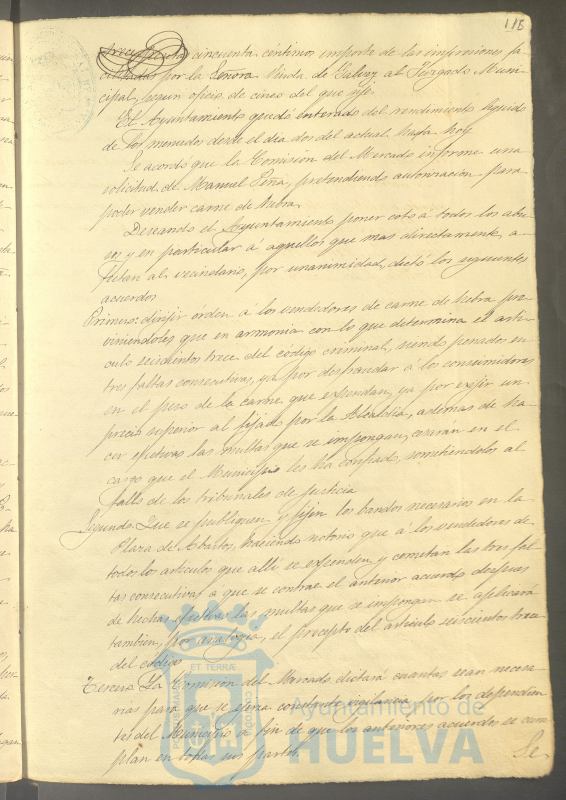 118
cincuenta centimos importe de las impresiones fa-
cilitadas por la Señora Viuda de Galvez al Juzgado Muni-
cipal, segun oficio de cinco del que rije.
El Ayuntamiento quedó enterado del rendimiento liquido
de los menudos desde el dia dos del actual hasta hoy.
Se acordó que la Comisión del Mercado informe una
solicitud de Manuel Peña, pretendiendo autorización para
poder vender carne de hebra.
Deseando el Ayuntamiento poner coto á todos los abu-
sos y en particular á aquellos que mas directamente a-
fectan al vecindario, por unanimidad, dictó los siguientes
acuerdos
Primero: dirijir órden á los vendedores de carne de hebra pre-
viniendoles que en armonia con lo que determina el arti-
culo seiscientos trece del código criminal, siendo penados en
tres faltas consecutivas, ya por defraudar á los consumidores
en el peso de la carne que expendan, ya por exijir un
precio superior al fijado por la Alcaldia, ademas de ha-
cer efectivas las multas que se impongan, cesaran en el
cargo que el Municipio les ha confiado, sometiéndolos al
fallo de los tribunales de justicia
Segundo. Que se publiquen y fijen los bandos necesarios en la
Plaza de Abastos, haciendo notorio que á los vendedores de
todos los articulos que alli se expenden y cometan las tres fal-
tas consecutivas a que se contrae el anterior acuerdo, despues
de hechas efectivas las multas que se impongan se aplicará
tambien, por analogia, el precepto del articulo seiscientos trece
del código
Tercero. Y la Comisión del Mercado dictará cuantas sean necesa-
rias para que se ejerza constante vigilancia por los dependien-
tes del Municipio á fin de que los anteriores acuerdos se cum-
plan en todas sus partes.
Se
Ayuntamiento de
HUELVA